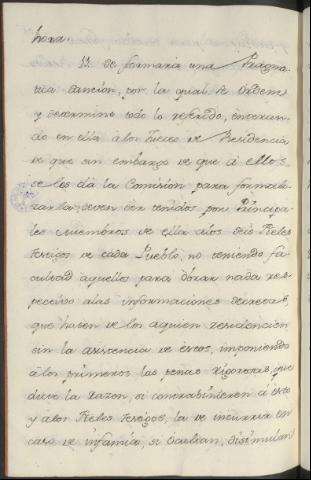 hora
12. Se formaria una Pragma
tica Sancion, por la qual se ordene
y determine todo lo referido, enteran
do en ella a los Jueces de Residencia
de que sin embargo de que à ellos
se les dà la Comision para formali
zarla, deven ser tenidos por Principa
les miembros de ella alos seis Fieles
texigos de cada Pueblo, no teniendo fa
cultad aquellos para obrar nada res
pectivo alas informaciones secretas,
que hasen de los aquien residencian
sin la asistencia de estos, imponiendo
à los primeros las penas rigorosas que
dicte la razon, si contrabinieren à esto
y alos Fieles texigos, la de incurrir en
caso de infamia, si ocultan, disimulan